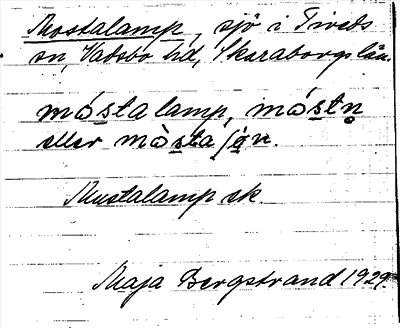 Mostalamp, sjö i Tiveds
sn, Vadsbo hd, Skaraborgs län.
móstalamp, móstn̥
eller mòstaʃön.
Mustalamp ek
Maja Bergstrand 1929.